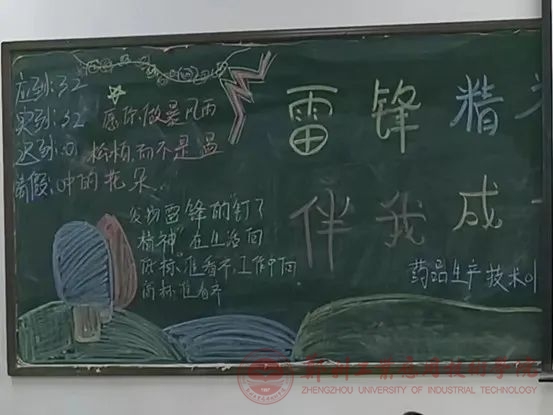 应到:32
实到:32
迟到:0
请假:0
愿你做暴风雨
松柏,而不是温
中的花朵
发扬雷锋的"钉子
精神"在生活向
低标准看齐,工作中向
高标准看齐
雷锋精
伴我成
药品生产技术01
ZHENGZHOU UNIVERSITY OF INDUSTRIAL TECHNOLOGY